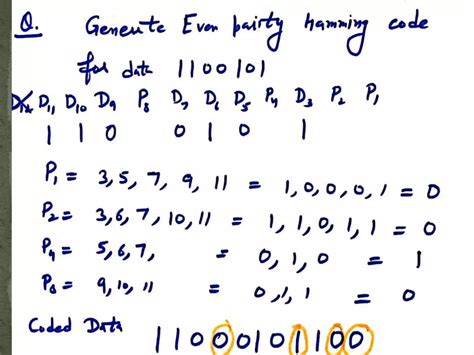 Q. Geneute Even pairty hamming code
for data 1100101
D12 D11 D10 D9 P8 D7 D6 D5 P4 D3 P2 P1
1 1 0 0 1 0 1
P1 = 3,5,7,9,11 = 1,0,0,0,1 = 0
P2 = 3,6,7,10,11 = 1,1,0,1,1 = 0
P4 = 5,6,7, = 0,1,0 = 1
P8 = 9,10,11 = 0,1,1 = 0
Coded Data 11000101100